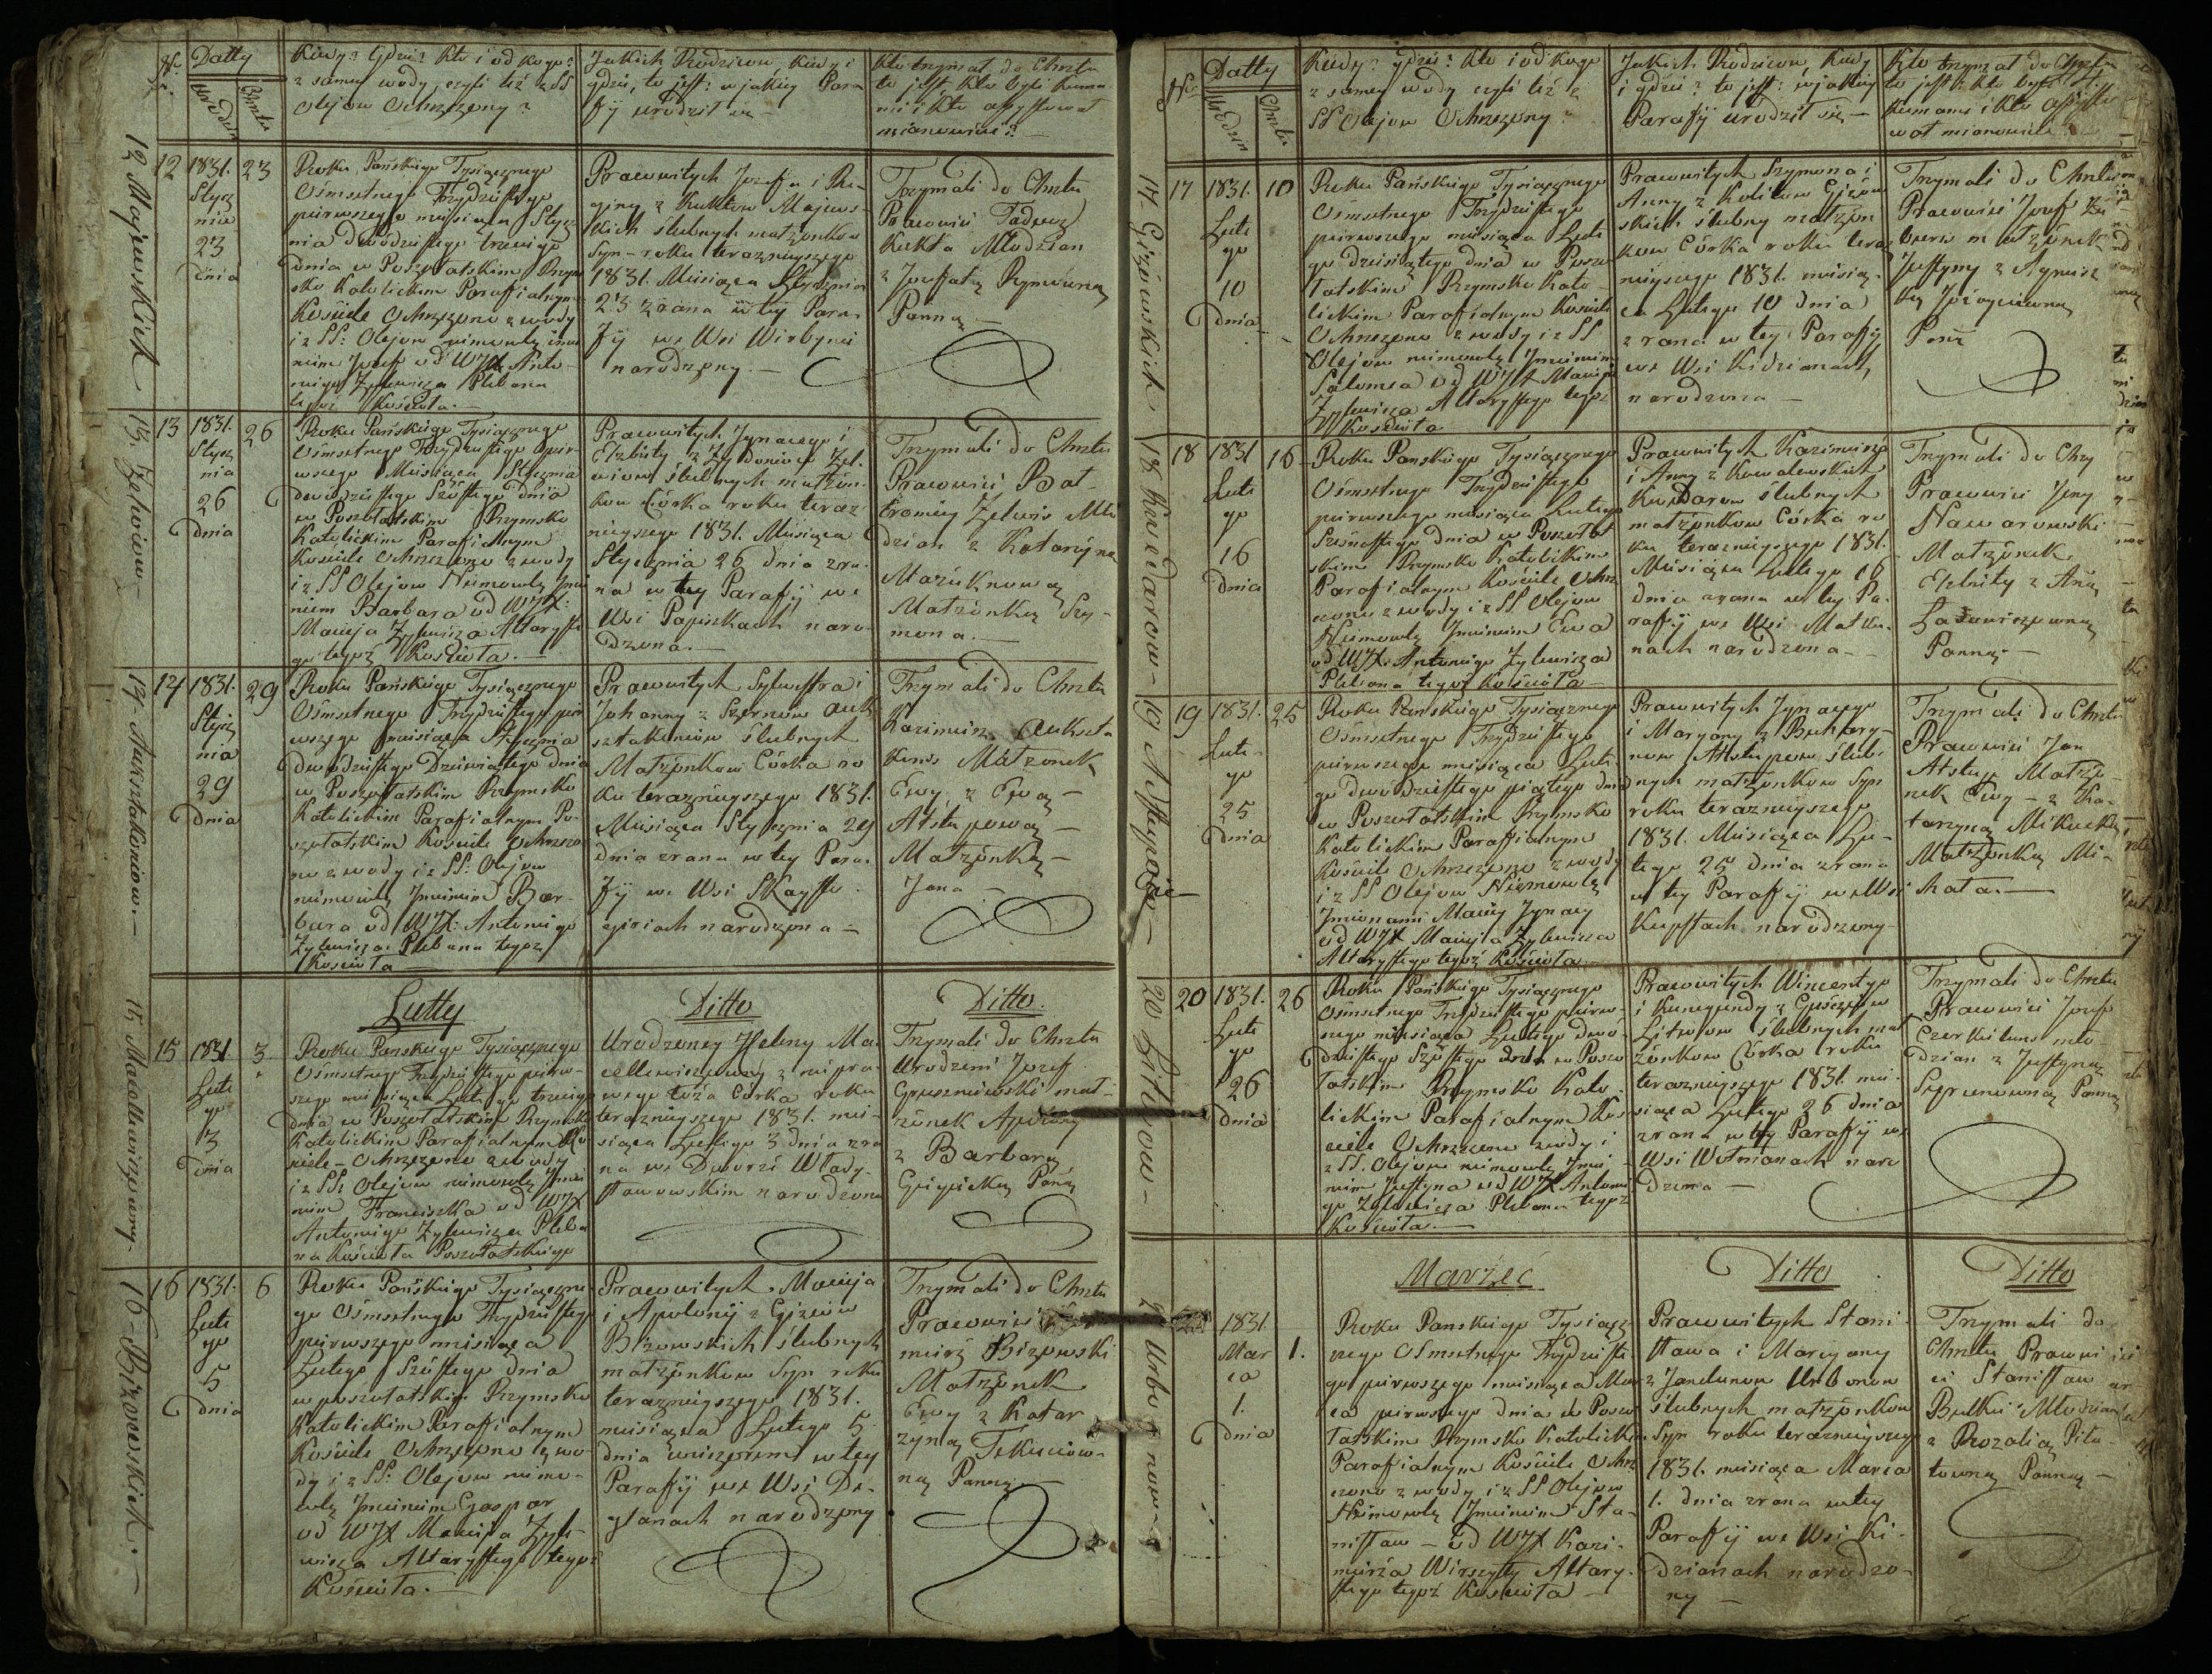 No
Datty
Urodzin
Chrztu
Kiedy? Gdzie? Kto i od kogo?
z samey wody, czyli też z SS
Olejow Ochrzczony?
Jakich Rodzicow, kiedy i
gdzie, to jest: w jakiey Para
fij urodził się –
Kto trzymał do Chrztu
to jest, kto byli kuma
mi i kto assystował
mianowicie? –
12 Majewskich
12
1831.
Stycz
nia
23
dnia
23
Roku Pańskiego Tysiącznego
Ośmsetnego Trzydziestego
pierwszego miesiąca Stycz
nia dwódziestego trzeciego
dnia w Poszołatskim Rzym
sko Katolickim Paraffialnym
Kościele Ochrzczono z wody
i z SS: Olejow niemowlę imie
niem Jozef od WJX Anto-
niego Zylewicza Plebana
tegoż Kościoła. –
Prawowitych Jozefa i Re-
giny z Kuktow Majews-
kich ślubnych małżonków
Syn – roku teraznieyszego
1831. Miesiąca Stycznia
23 zrana w tey Para-
fij we Wsi Wirbyni
narodzony. –
Trzymali do Chrztu
Prawowici Tadeusz
Kukta Młodzian
z Jozefatą Rymówną
Panną –
13. Żelwiow –
13
1831.
Stycz
nia
26
dnia
26
Roku Pańskiego Tysiącznego
Ośmsetnego Trzydziestego pier-
wszego Miesiąca Stycznia
dwódziestego Szóstego dnia
w Poszołatskim Rzymsko
Katolickim Parafialnym
Kościele Ochrzczono z wody
i z SS Olejow Niemowlę Imie
niem Barbara od WJX:
Macieja Zylewicza Altaryste
go tegoż Kościoła. –
Prawowitych Jgnacego i
Elżbiety z Żydoniow Żel-
wiow ślubnych małżon-
kow Córka roku teraz-
nieyszego 1831. Miesiąca
Stycznia 26 dnia zra-
na w tey Parafij we
Wsi Papiszkach naro-
dzona. –
Trzymali do Chrztu
Prawowici Bał-
tromiey Żelwis Mło
dzian z Katarzyną
Maziuknową
Małżonką Szy-
mona. –
14 Aukształoniow. –
14
1831.
Stycz
nia
29
dnia
29
Roku Pańskiego Tysiącznego
Ośmsetnego Trzydziestego pier
wszego miesiąca Stycznia
dwódziestego Dziewiątego dnia
w Poszołatskim Rzymsko
Katolickim Parafialnym Po-
szołatskim Kościele Ochrzczo
no z wody i z SS: Olejow
niemowlę Jmieniem Bar-
bara od WJX: Antoniego
Zylewicza Plebana tegoż
Kościoła –
Prawowitych Sylwestra i
Johanny z Szernow Auk
ślubnych
Małżonkow Córka ro
ku teraznieyszego 1831.
Miesiąca Stycznia 29
dnia zrana w tey Para-
fij we Wsi
narodzona –
Trzymali do Chrztu
Kazimierz Aukszta
Małżonek
Ewy z Ewą –
Atstupową –
Małżonką –
Jana –
Lutty
Ditto
Ditto.
15 Macullewiczowny.
15
1831
Lute
go
3
dnia
3
Roku Panskiego Tysiącznego
Ośmsetnego Trzydziestego pierw-
szego miesiąca Lutego trzeciego
dnia w Poszołatskim Rzymsko
Katolickim Parafialnym Ko
ściele – Ochrzczono z wody
i z SS: Olejow niemowlę Jmie
niem Franciszka od WJX
Antoniego Zylewicza Pleba
na Kościoła Poszołatskiego
Urodzoney Heleny Ma
z niepra-
wego łoża Córka roku
teraznieyszego 1831. mie-
siąca Lutego 3 dnia zra
na we Dworze Włady-
sławowskim narodzona
Trzymali do Chrztu
Urodzeni Jozef
Gruszniewski mał-
żonek
z Barbarą
Panną
16 – Bizowskich. –
16
1831.
Lute
go
5
dnia
6
Roku Pańskiego Tysiączne
go Ośmsetnego Trzydziestego
pierwszego miesiąca
Lutego Szóstego dnia
w poszołatskim Rzymsko
Katolickim Paraffialnym
Kościele Ochrzczono z wo
dy i z SS: Olejow niemo-
wlę Jmieniem Gaspar
od WJX Macieja Zyle-
wicza Altarystego tegoż
Kościoła. –
Prawowitych Macieja
i Apolonij z Giżiow
Bizowskich ślubnych
małżonkow Syn roku
teraznieyszego 1831.
miesiąca Lutego 5
dnia wieczorem w tey
Parafij we Wsi
narodzony
Trzymali do Chrztu
Prawowici
mierz Bizowski
Małżonek
Ewy z Katar
zyną
ną Panną –
No
Datty
Urodzin
Chrztu
Kiedy? gdzie? Kto i od kogo
z samey wody czyli też z
SS Olejow Ochrzczony?
Jakich Rodzicow, kiedy
i gdzie? to jest: w jakiey
Parafij urodził się –
Kto trzymał do Chrztu
to jest: kto byli
kumami i kto assysto-
wał mianowicie –
17 Giżewskich
17
1831.
Lute
go
10
dnia
10
Roku Pańskiego Tysiącznego
Ośmsetnego Trzydziestego
pierwszego miesiąca Lute
go dziesiątego dnia w Poszo
łatskim Rzymsko Kato-
lickim Parafialnym Kościele
Ochrzczono z wody i z SS
Olejow niemowlę Jmieniem
Salomea od WJX Macieja
Zylewicza Altarystego tegoż
Kościoła
Prawowitych Szymona i
Anny z Kulisow Giżew
skich ślubnych małżon
kow Córka roku teraz
nieyszego 1831. miesią-
ca Lutego 10 dnia
zrana w tey Parafij
we Wsi Kidzianach
narodzona –
Trzymali do Chrztu
Prawowici Jozef
małżonek
Justyny z Agniesz
ką
Pan
18 Kwedarow –
18
1831
Lute
go
16
dnia
16
Roku Panskiego Tysiącznego
Ośmsetnego Trzydziestego
pierwszego miesiąca Lutego
Szesnastego dnia w Poszołat
skim Rzymsko Katolickim
Parafialnym Kościele Ochrz
czono z wody i z SS Olejow
Niemowlę Jmieniem Ewa
od WJX. Antoniego Zylewicza
Plebana tegoż Kościoła –
Prawowitych Kazimierza
i Anny z Kowalewskich
Kwedarow ślubnych
małżonkow Córka ro
ku teraznieyszego 1831.
Miesiąca Lutego 16
dnia zrana w tey Pa-
rafij we Wsi Matku-
nach narodzona –
Trzymali do Chrz
Prawowici Jerzy
Nawarowski
Małżonek
Elżbiety z Anną
Łatawiszowną
Panną. –
19 Atstupow –
19
1831.
Lute-
go
25
dnia
25
Roku Panskiego Tysiącznego
Ośmsetnego Trzydziestego
pierwszego miesiąca Lute-
go dwódziestego piątego dnia
w Poszołatskim Rzymsko
Katolickim Paraffialnym
Kościele Ochrzczono z wody
i z SS Olejow Niemowlę
Jmionami Maciey Jgnacy
od WJX Macieja Zylewicza
Altarystego tegoż Kościoła –
Prawowitych Jgnacego
i Maryany z
now Atstupow ślub-
dnych małżonkow Syn
roku teraznieyszego
1831. Miesiąca Lu-
tego 25 dnia zrana
w tey Parafij we Wsi
narodzony –
Trzymali do Chrztu
Prawowici Jan
Atstup Małżo-
nek Ewy – z Ka-
tarzyną Mikucką
Małżonką Mi-
chała. –
20 Litwow –
20
1831.
Lute
go
26
dnia
26
Roku Pańskiego Tysiącznego
Ośmsetnego Trzydziestego pierw-
szego miesiąca Lutego dwó-
dziestego Szóstego dnia w Poszo
łatskim Rzymsko Kato-
lickim Parafialnym Koś
ciele Ochrzczono z wody i
z SS. Olejow niemowlę Jmie-
niem Justyna od WJX Antonie
go Zylewicza Plebana tegoż
Kościoła. –
Prawowitych Wincentego
i Kunegundy z
Litwow ślubnych mał
żonkow Córka roku
teraznieyszego 1831. mie-
siąca Lutego 26 dnia
zrana w tey Parafij we
Wsi Wołmianach naro
dzona –
Trzymali do Chrztu
Prawowici Jozef
mło-
dzian z Justyną
Panną
Marzec
Ditto
Ditto
21 Urbonow
1831
Mar
ca
1.
dnia
1.
Roku Panskiego Tysiącz-
nego Ośmsetnego Trzydzieste
go pierwszego miesiąca Mar
ca pierwszego dnia w Poszo
łatskim Rzymsko Katolickim
Parafialnym Kościele Ochrz
czono z wody i z SS Olejow
Niemowlę Jmieniem Sta-
nisław – od WJX Kazi-
mierza Wirszyłły Altary-
stego tegoż Kościoła –
Prawowitych Stani-
sława i Maryany
z Janelunow Urbonow
ślubnych małżonkow
Syn roku teraznieyszego
1831. miesiąca Marca
1. dnia zrana w tey
Parafij we Wsi Ki-
dzianach narodzo-
ny –
Trzymali do
Chrztu Prawowi
ci Stanisław
Młodzian
z Rozalią Piła-
towną Panną –